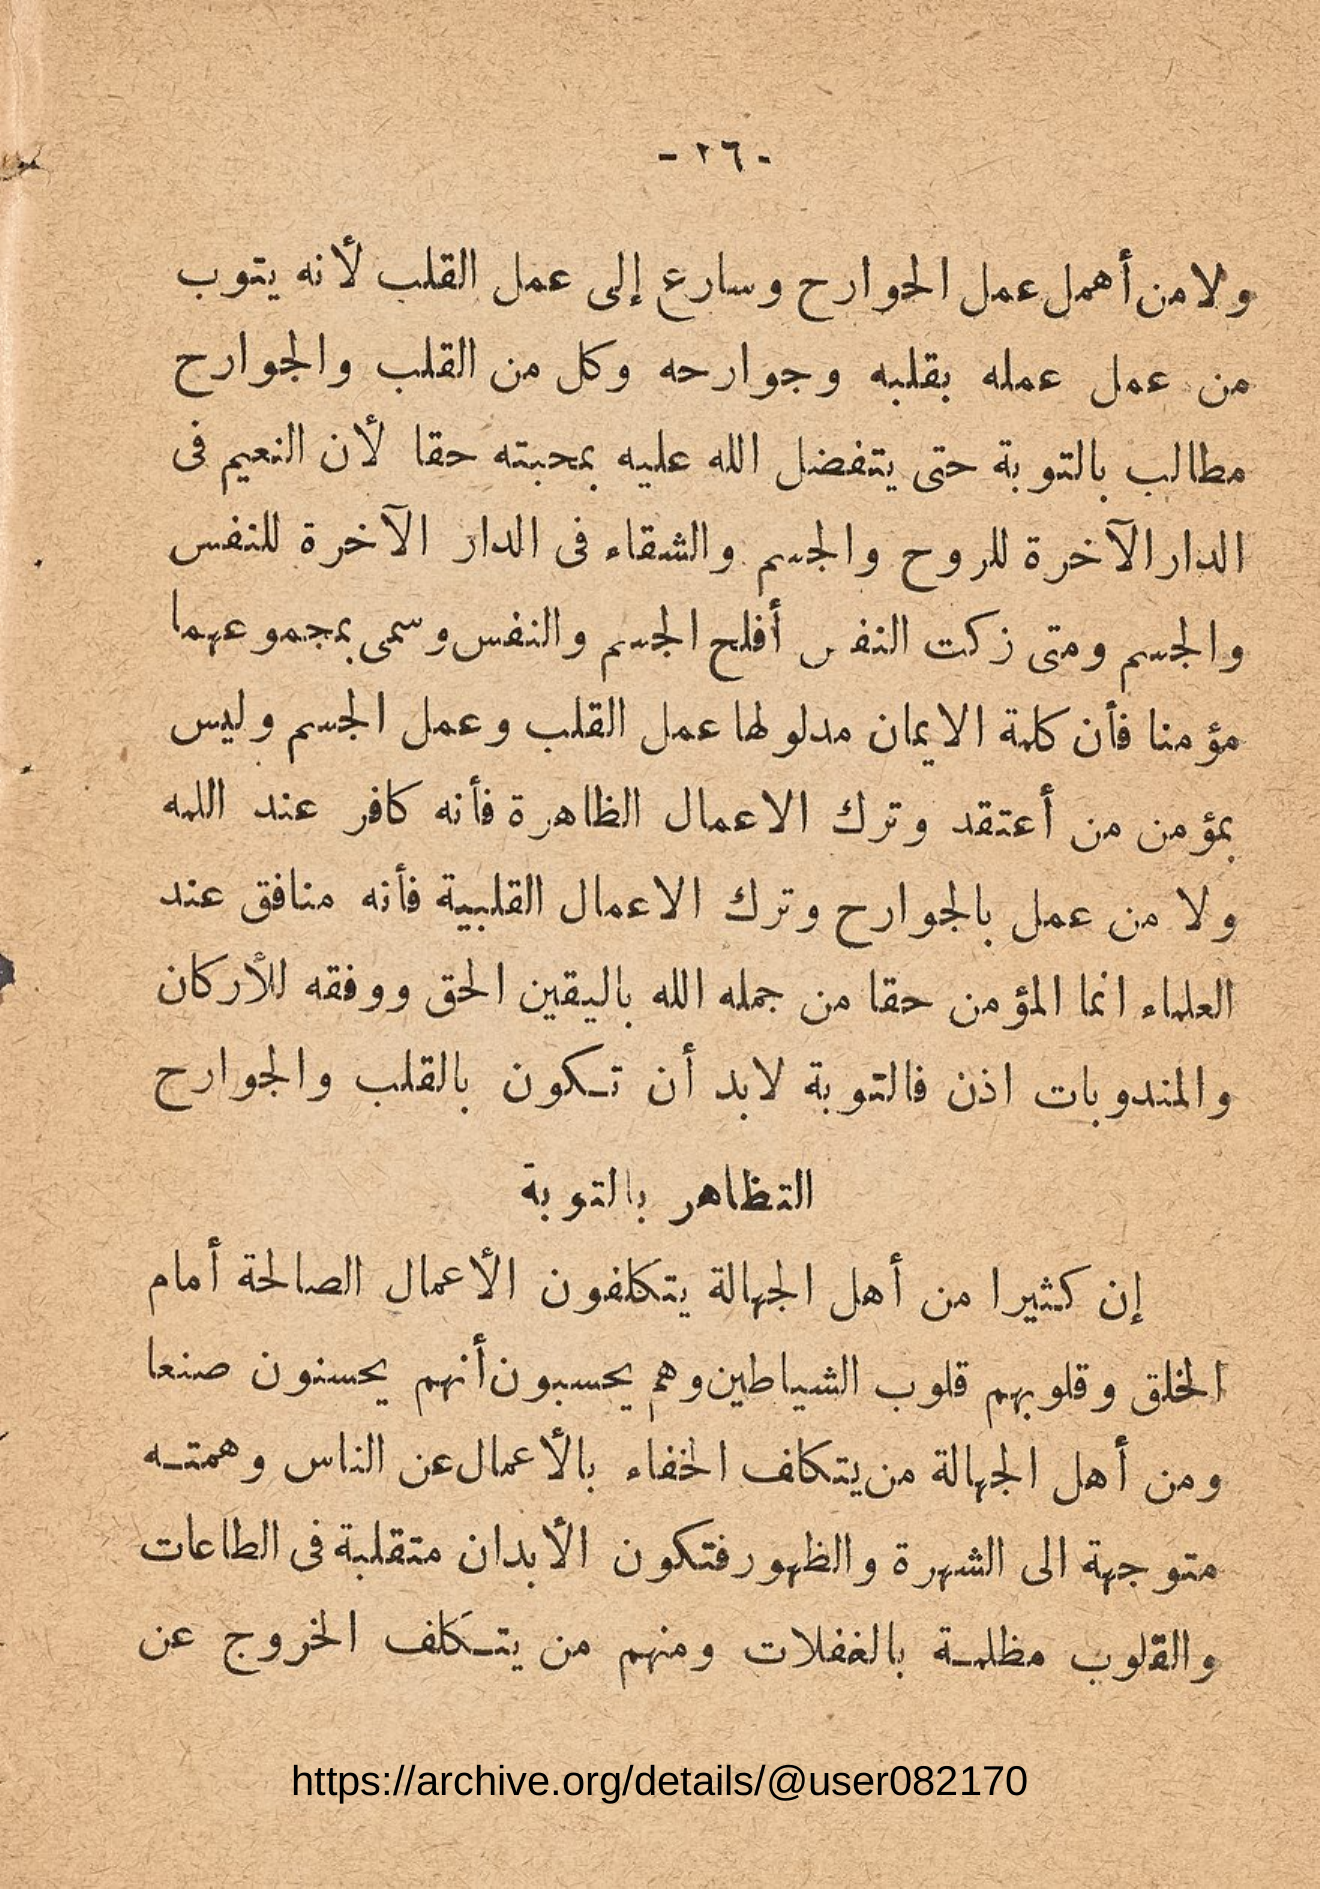 - ٢٦ -
ولا من أهمل عمل الجوارح وسارع إلى عمل القلب لأنه يتوب
من عمل عمله بقلبه وجوارحه وكل من القلب والجوارح
مطالب بالتوبة حتى يتفضل الله عليه بمحبته حقا لأن النعيم فى
الدار الآخرة للروح والجسم والشقاء فى الدار الآخرة للنفس
والجسم ومتى زكت النفس أفلح الجسم والنفس وسمى بمجموعهما
مؤمنا فأن كلمة الايمان مدلولها عمل القلب وعمل الجسم وليس
بمؤمن من أعتقد وترك الاعمال الظاهرة فأنه كافر عند الله
ولا من عمل بالجوارح وترك الاعمال القلبية فأنه منافق عند
العلماء انما المؤمن حقا من جمله الله باليقين الحق ووفقه للأركان
والمندوبات اذن فالتوبة لابد أن تكون بالقلب والجوارح
التظاهر بالتوبة
إن كثيرا من أهل الجهالة يتكلفون الأعمال الصالحة أمام
الخلق وقلوبهم قلوب الشياطين وهم يحسبون أنهم يحسنون صنعا
ومن أهل الجهالة من يتكاف الخفاء بالأعمال عن الناس وهمته
متوجهة الى الشهرة والظهور فتكون الأبدان متقلبة فى الطاعات
والقلوب مظلمة بالغفلات ومنهم من يتكلف الخروج عن
https://archive.org/details/@user082170